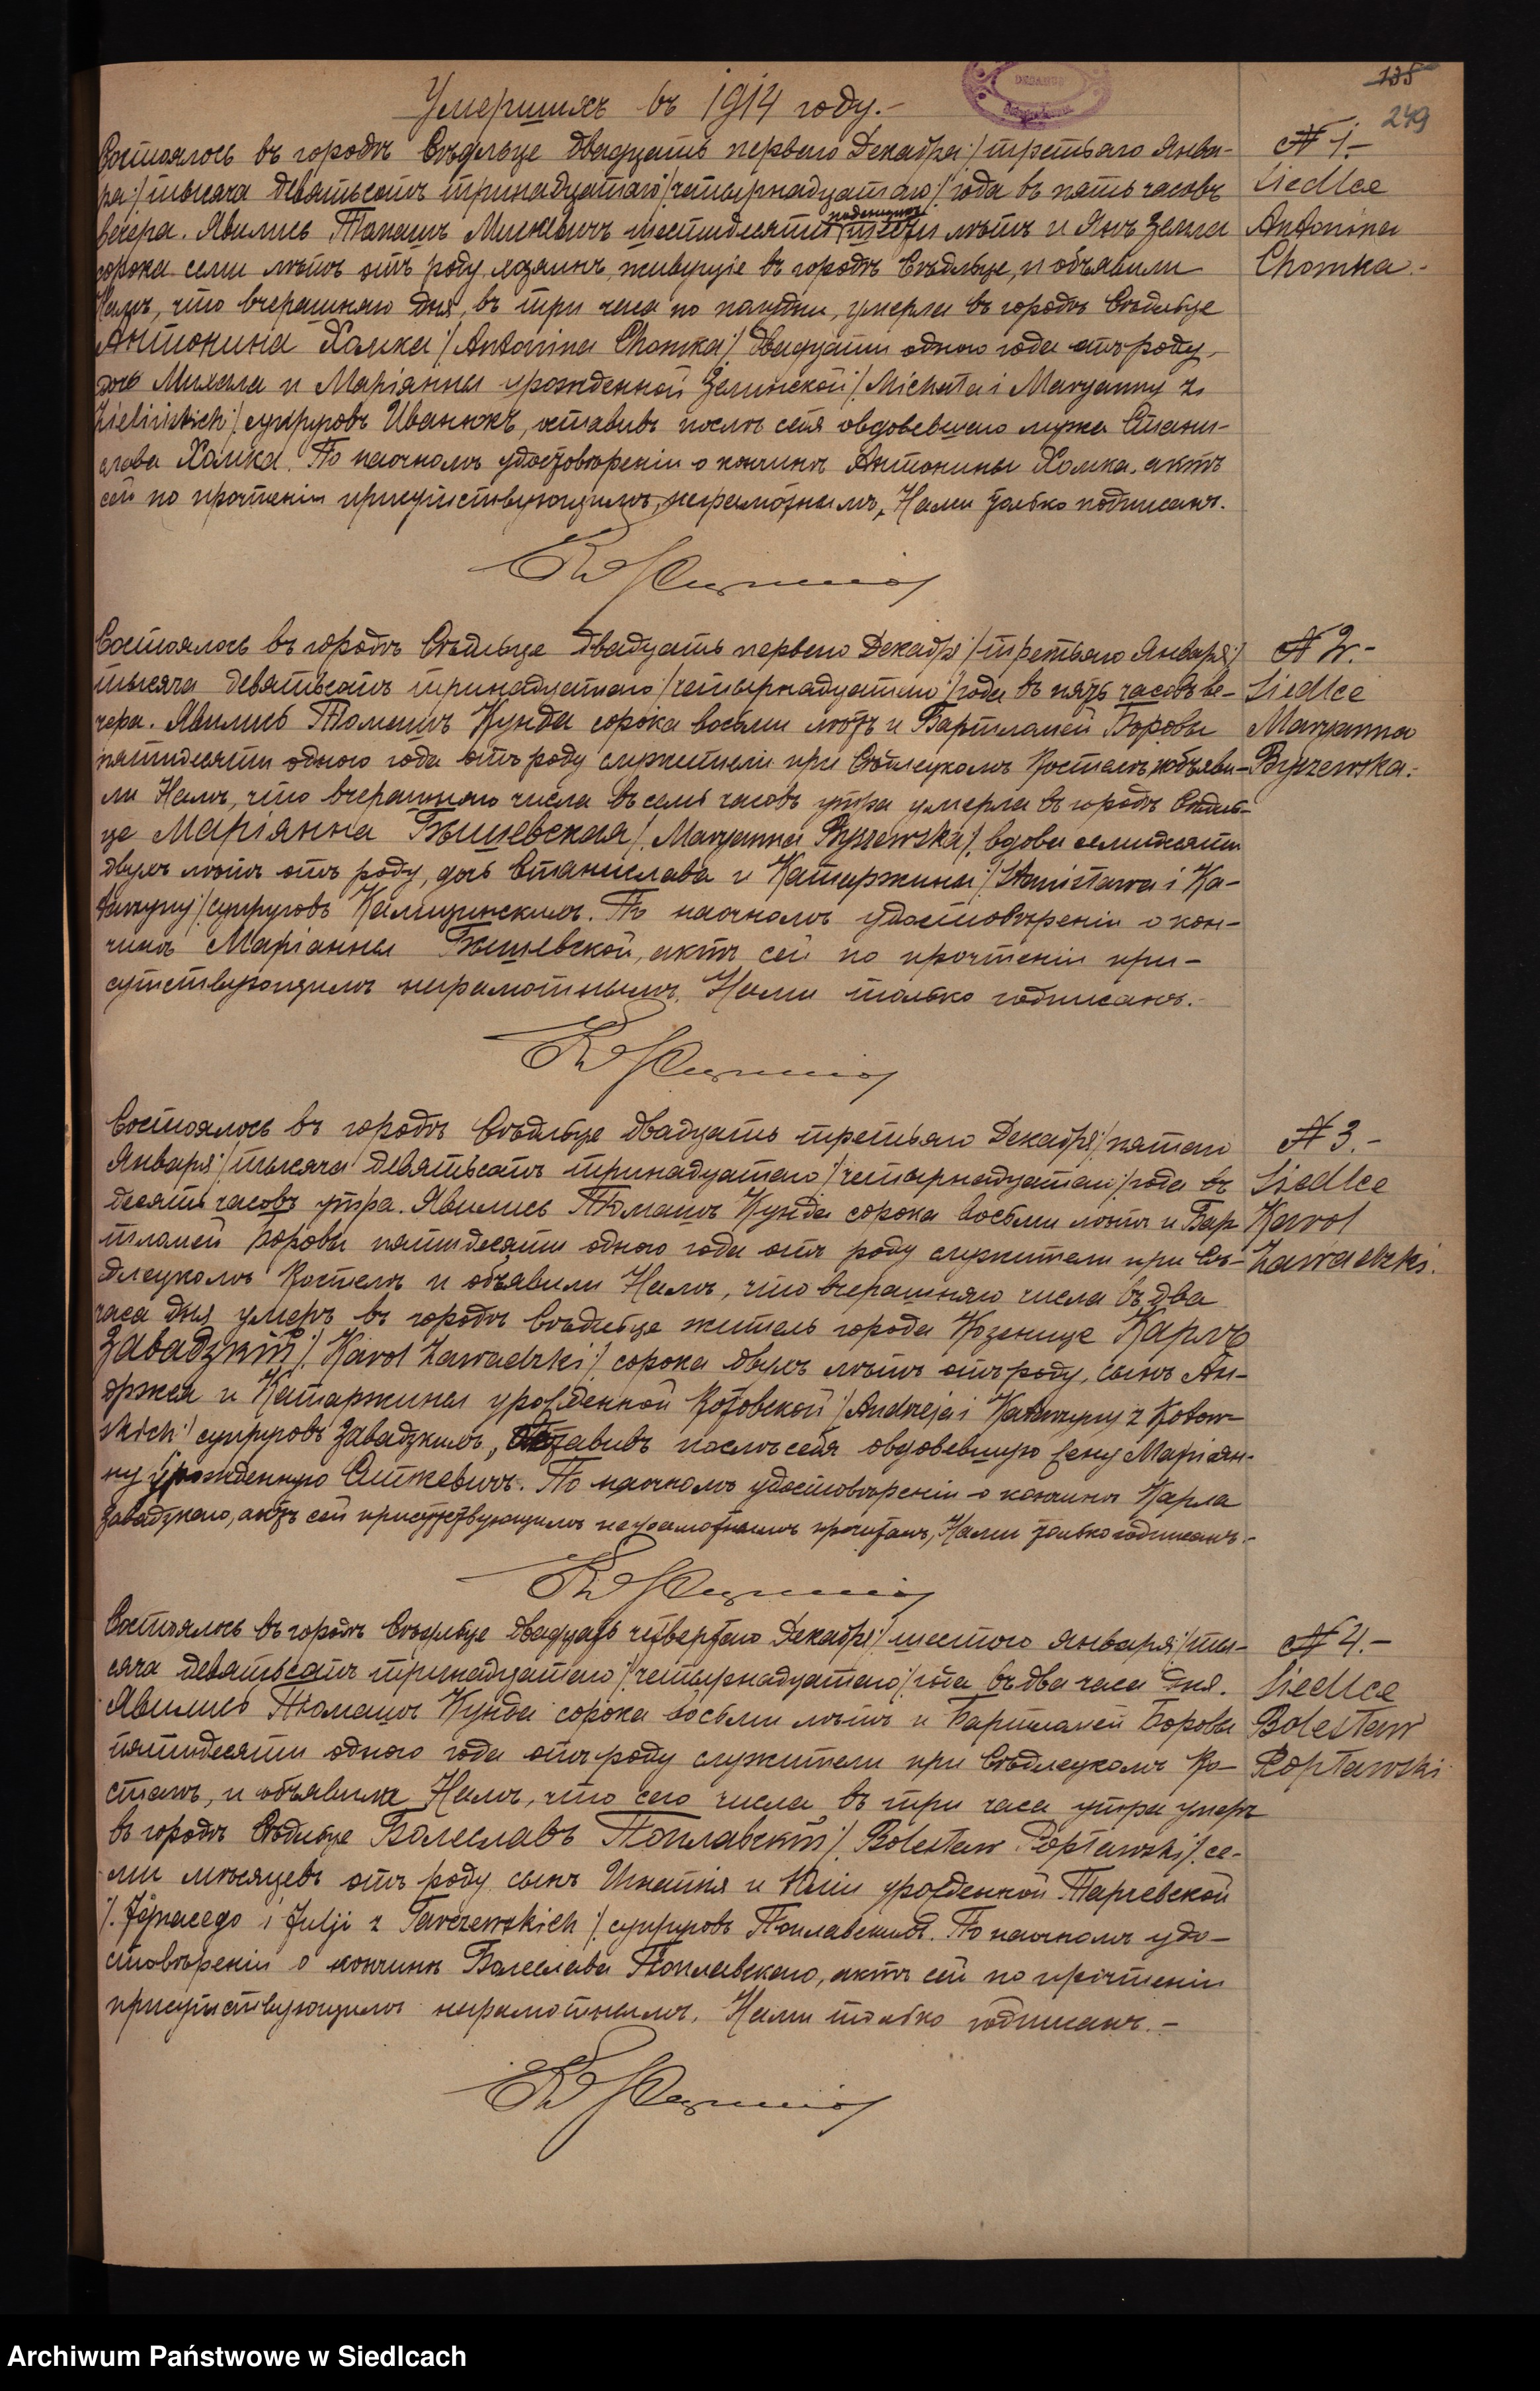 135
249
Умершихъ въ 1914 году.-
Состоялось въ городѣ Сѣдльце двадцать перваго Декабря /: третьяго Янва-
ря :/ тысяча девятьсотъ тринадцатаго /: четырнадцатаго :/ года въ пять часовъ
вечера. Явились Томашъ Мискевичъ шестидесяти лѣтъ и Янъ Земла
сорока семи лѣтъ отъ роду, живущіе въ городѣ Сѣдльце, и объявили
Намъ, что вчерашняго дня, въ три часа по полудни, умерла въ городѣ Сѣдльце
Антонина Хомка /: Antonina Chomka :/ двадцати одного года отъ роду,
дочь Михала и Маріанны урожденной Зелинской /: Michała i Maryanny z
Zielińskich :/ супруговъ Иванюкъ, оставивъ послѣ себя овдовевшаго мужа Стани-
слава Хомка. По наочномъ удостовѣреніи о кончинѣ Антонины Хомка, актъ
сей по прочтеніи присутствующимъ, неграмотнымъ, Нами только подписанъ.
№ 1.-
Siedlce
Antonina
Chomka.-
Состоялось въ городѣ Сѣдльце двадцать перваго Декабря /: третьяго Января :/
тысяча девятьсотъ тринадцатаго /: четырнадцатаго :/ года въ пять часовъ ве-
чера. Явились Томашъ Кунда сорока восьми лѣтъ и Бартломей Боровы
пятидесяти одного года отъ роду служители при Сѣдлецкомъ Костелѣ, и объяви-
ли Намъ, что вчерашняго числа въ семь часовъ утра умерла въ городѣ Сѣдль-
це Маріянна Бышевская /: Maryanna Byszewska :/ вдова семидесяти
двухъ лѣтъ отъ роду, дочь Станислава и Катаржины /: Stanisława i Ka-
tarzyny :/ супруговъ Калищинскихъ. По наочномъ удостовѣреніи о кон-
чинѣ Маріанны Бышевской, актъ сей по прочтеніи при-
сутствующимъ неграмотнымъ, Нами только подписанъ.-
№ 2.-
Siedlce
Maryanna
Byszewska.
Состоялось въ городѣ Сѣдльце двадцать третьяго Декабря /: пятаго
Января :/ тысяча девятьсотъ тринадцатаго /: четырнадцатаго :/ года въ
десять часовъ утра. Явились Томашъ Кунда сорока восьми лѣтъ и Бар
тломей Боровы пятидесяти одного года отъ роду служители при Сѣ-
длецкомъ Костелѣ и объявили Намъ, что вчерашняго числа въ два
часа дня умеръ въ городѣ Сѣдльце житель города Козенице Карлъ
Завадзкій /: Karol Zawadzki :/ сорока двухъ лѣтъ отъ роду, сынъ Ан-
држея и Катаржины урожденной Котовской /: Andrzeja i Katarzyny z Kotow-
skich :/ супруговъ Завадзкихъ, оставивъ послѣ себя овдовевшую жену Маріян-
ну урожденную Ошкевичъ. По наочномъ удостовѣреніи о кончинѣ Карла
Завадзкаго, актъ сей присутствующимъ неграмотнымъ прочитанъ, Нами только подписанъ.-
№ 3.-
Siedlce
Karol
Zawadzki.
Состоялось въ городѣ Сѣдльце двадцать четвертаго Декабря /: шестого Января :/ ты-
сяча девятьсотъ тринадцатаго /: четырнадцатаго :/ года въ два часа дня.
Явились Томашъ Кунда сорока восьми лѣтъ и Бартломей Боровы
пятидесяти одного года отъ роду служители при Сѣдлецкомъ Ко-
стелѣ, и объявили Намъ, что сего числа въ три часа утра умеръ
въ городѣ Сѣдльце Болеславъ Поплавскій /: Bolesław Popławski :/ се-
ми мѣсяцевъ отъ роду сынъ Игнатія и Юліи урожденной Тарчевской
/: Ignacego i Julji z Tarczewskich :/ супруговъ Поплавскихъ. По наочномъ удо-
стовѣреніи о кончинѣ Болеслава Поплавскаго, актъ сей по прочтеніи
присутствующимъ неграмотнымъ, Нами только подписанъ.-
№ 4.-
Siedlce
Bolesław
Popławski
Archiwum Państwowe w Siedlcach